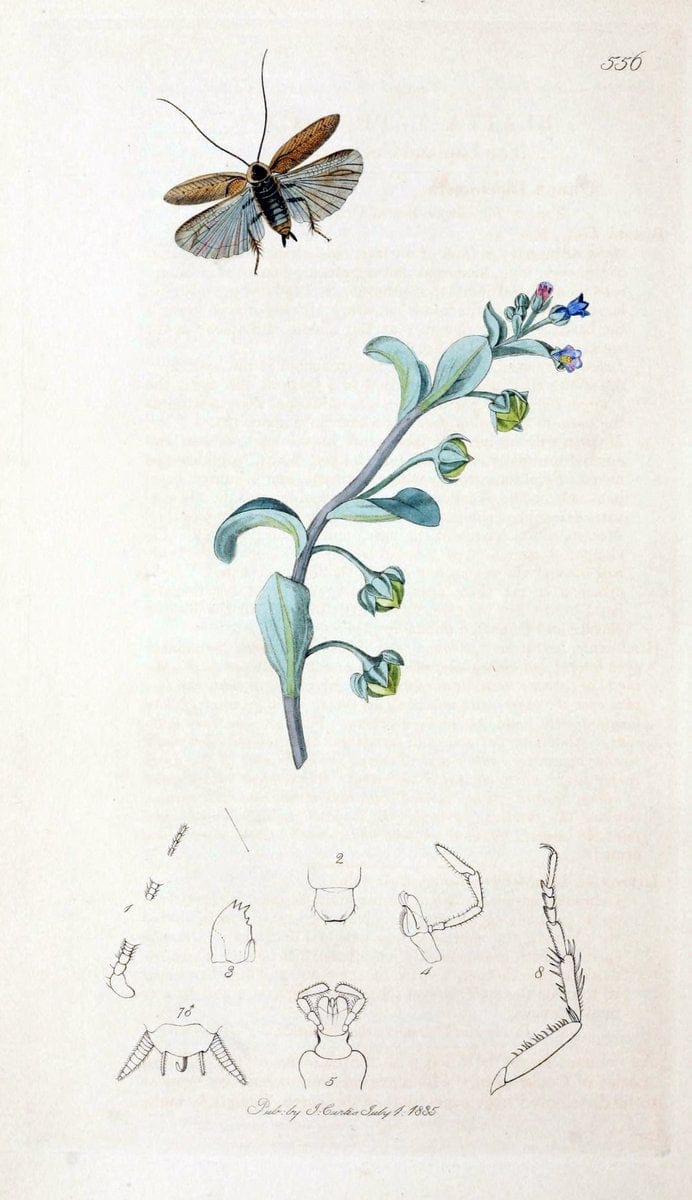 556
1
2
3
4
8
7♂
5
Pub. by J. Curtis July 1. 1835